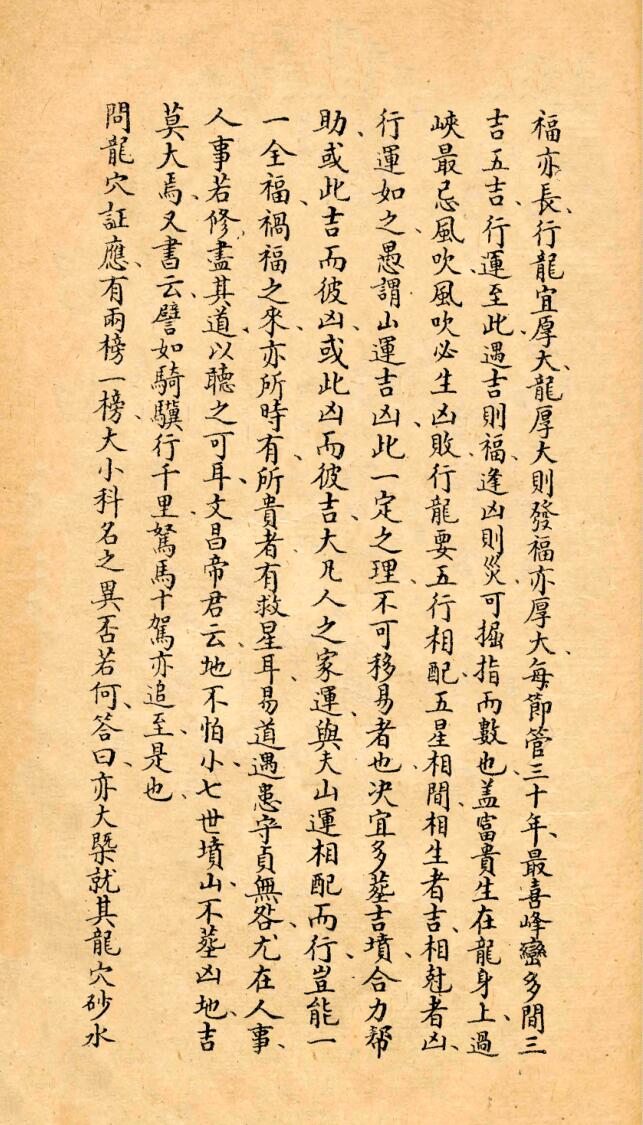 福亦長、行龍宜厚大、龍厚大則發福亦厚大、每節管三十年、最喜峰巒多間三
吉五吉、行運至此、遇吉則福、逢凶則災、可掘指而數也、盖富貴生在龍身上、過
峽最忌風吹、風吹必生凶敗、行龍要五行相配、五星相間、相生者吉、相尅者凶、
行運如之、愚謂山運吉凶、此一定之理、不可移易者也、决宜多塟吉墳、合力幫
助、或此吉而彼凶、或此凶而彼吉、大凡人之家運、與夫山運相配而行、豈能一
一全福、禍福之來、亦所時有、所貴者有救星耳、易道遇患守貞無咎、尤在人事、
人事若修盡其道、以聽之可耳、文昌帝君云、地不怕小、七世墳山、不塟凶地、吉
莫大焉、又書云、譬如騎驥行千里、駑馬十駕亦追至、是也、
問龍穴証應、有兩榜一榜、大小科名之異否、若何、答曰、亦大槩就其龍穴砂水